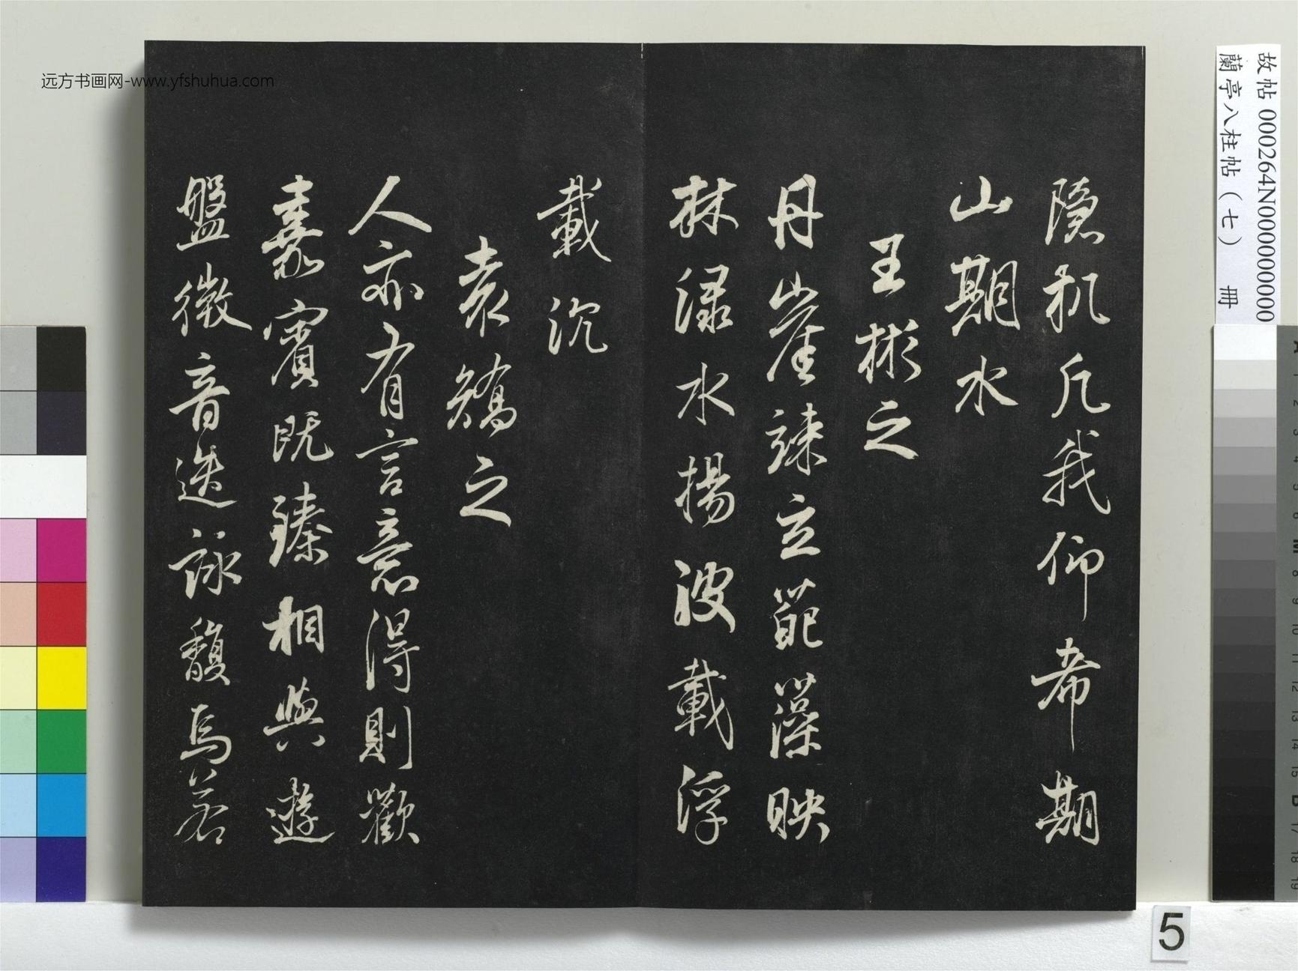 远方书画网-www.yfshuhua.com
隐机凡我仰希期
山期水
王彬之
丹崖竦立葩藻映
林淥水揚波載浮
載沉
袁嶠之
人亦有言意得則歡
嘉賓既臻相與遊
盤微音迭詠馥焉若
故帖 000264N000000000
蘭亭八柱帖（七） 冊
5